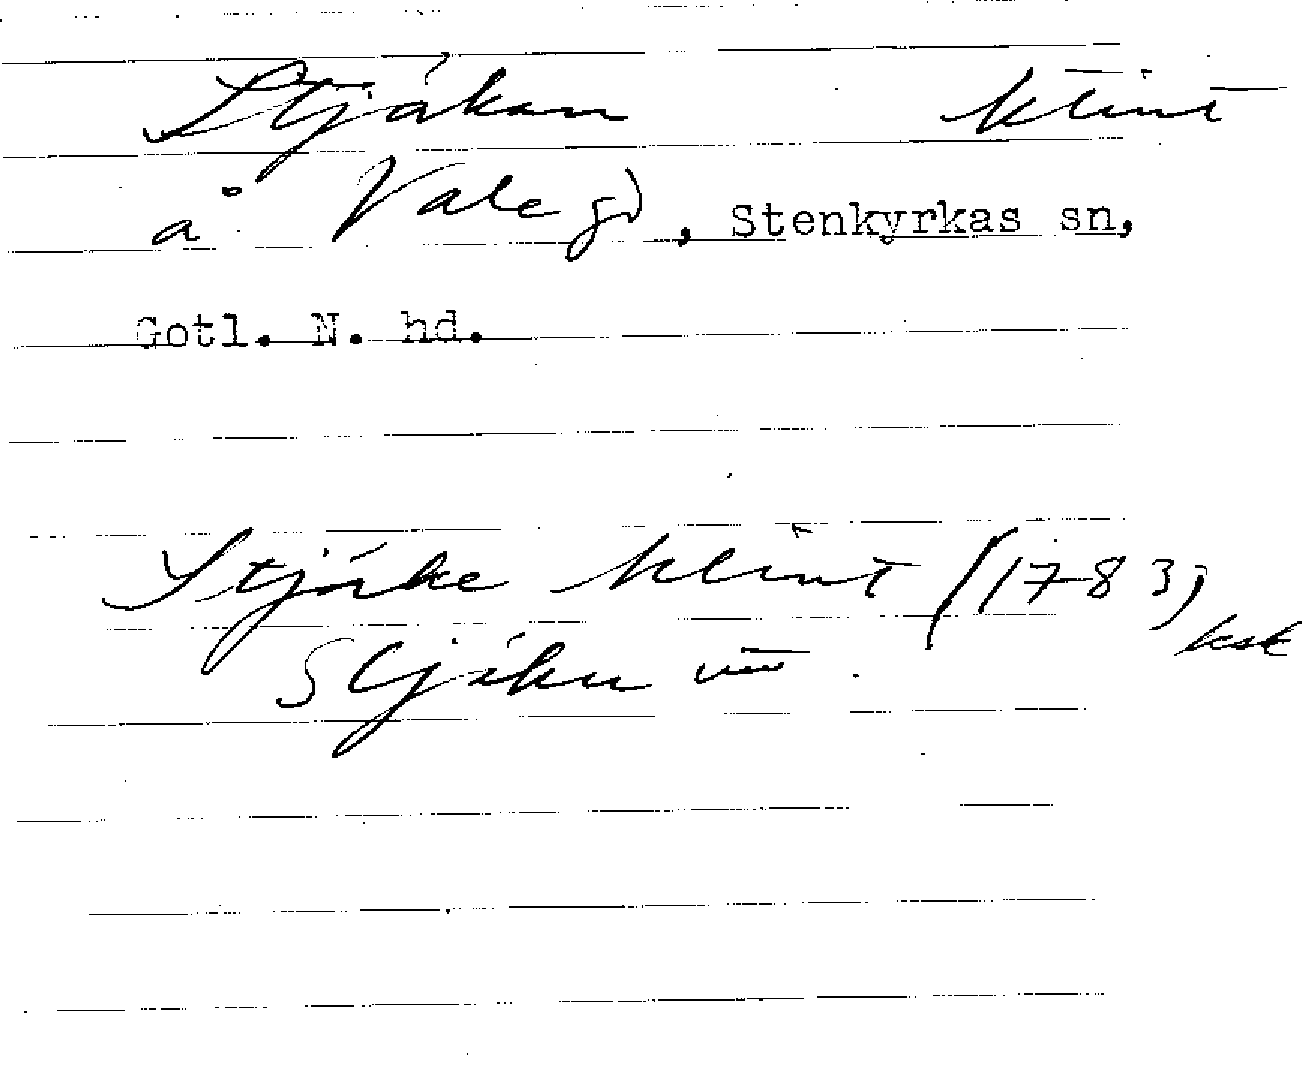 Stjákan klint
å Vale gd, Stenkyrkas sn,
Gotl. N. hd.
Stjárke klint (1783)
ksk
Stjáku